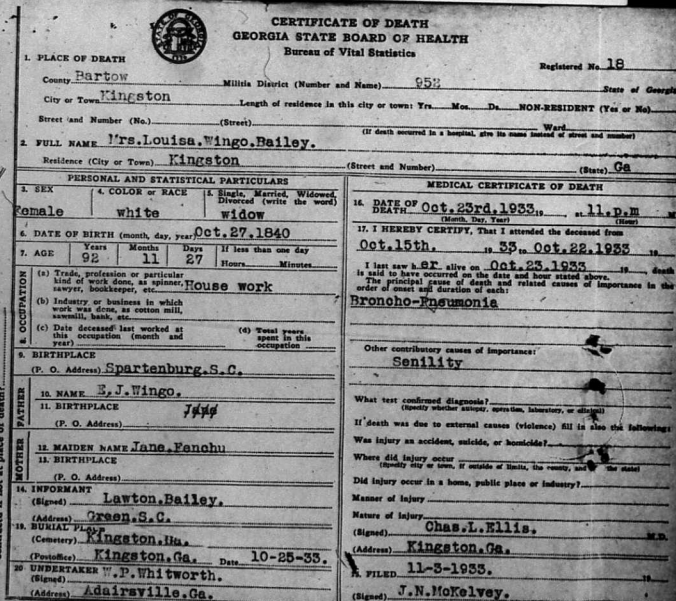 CERTIFICATE OF DEATH
GEORGIA STATE BOARD OF HEALTH
Bureau of Vital Statistics
Registered No. 18
1. PLACE OF DEATH
County Bartow Militia District (Number and Name) 952 State of Georgia
City or Town Kingston Length of residence in this city or town: Yrs. Mos. Ds. NON-RESIDENT (Yes or No)
Street and Number (No.) (Street) Ward
(If death occurred in a hospital, give its name instead of street and number)
2. FULL NAME Mrs.Louisa.Wingo.Bailey.
Residence (City or Town) Kingston (Street and Number) (State) Ga
PERSONAL AND STATISTICAL PARTICULARS
3. SEX 4. COLOR or RACE 5. Single, Married, Widowed, Divorced (write the word)
Female white widow
6. DATE OF BIRTH (month, day, year) Oct.27.1840
7. AGE Years Months Days If less than one day
92 11 27 Hours Minutes
8. OCCUPATION
(a) Trade, profession or particular
kind of work done, as spinner, House work
sawyer, bookkeeper, etc.
(b) Industry or business in which
work was done, as cotton mill,
sawmill, bank, etc.
(c) Date deceased last worked at (d) Total years
this occupation (month and spent in this
year) occupation
9. BIRTHPLACE
(P. O. Address) Spartenburg.S.C.
FATHER
10. NAME E,J.Wingo.
11. BIRTHPLACE
(P. O. Address)
MOTHER
12. MAIDEN NAME Jane.Fanchu
13. BIRTHPLACE
(P. O. Address)
14. INFORMANT
(Signed) Lawton.Bailey.
(Address) Green.S.C.
19. BURIAL PLACE
(Cemetery) Kingston.Ga.
(Postoffice) Kingston.Ga. Date 10-25-33.
20 UNDERTAKER W.P.Whitworth.
(Signed)
(Address) Adairsville.Ga.
MEDICAL CERTIFICATE OF DEATH
16. DATE OF
DEATH Oct.23rd.1933 19 at 11.p.m M
(Month, Day, Year) (Hour)
17. I HEREBY CERTIFY, That I attended the deceased from
Oct.15th. 1933 to Oct.22.1933 19
I last saw her alive on Oct.23.1933 19 , death
is said to have occurred on the date and hour stated above.
The principal cause of death and related causes of importance in the
order of onset and duration of each:
Broncho-Pneumonia
Other contributory causes of importance:
Senility
What test confirmed diagnosis?
(Specify whether autopsy, operation, laboratory, or clinical)
If death was due to external causes (violence) fill in also the following:
Was injury an accident, suicide, or homicide?
Where did injury occur
(Specify city or town, if outside of limits, the county, and the state)
Did injury occur in a home, public place or industry?
Manner of injury
Nature of injury
(Signed) Chas.L.Ellis. M.D.
(Address) Kingston.Ga.
FILED 11-3-1933. 19
(Signed) J.N.McKelvey.